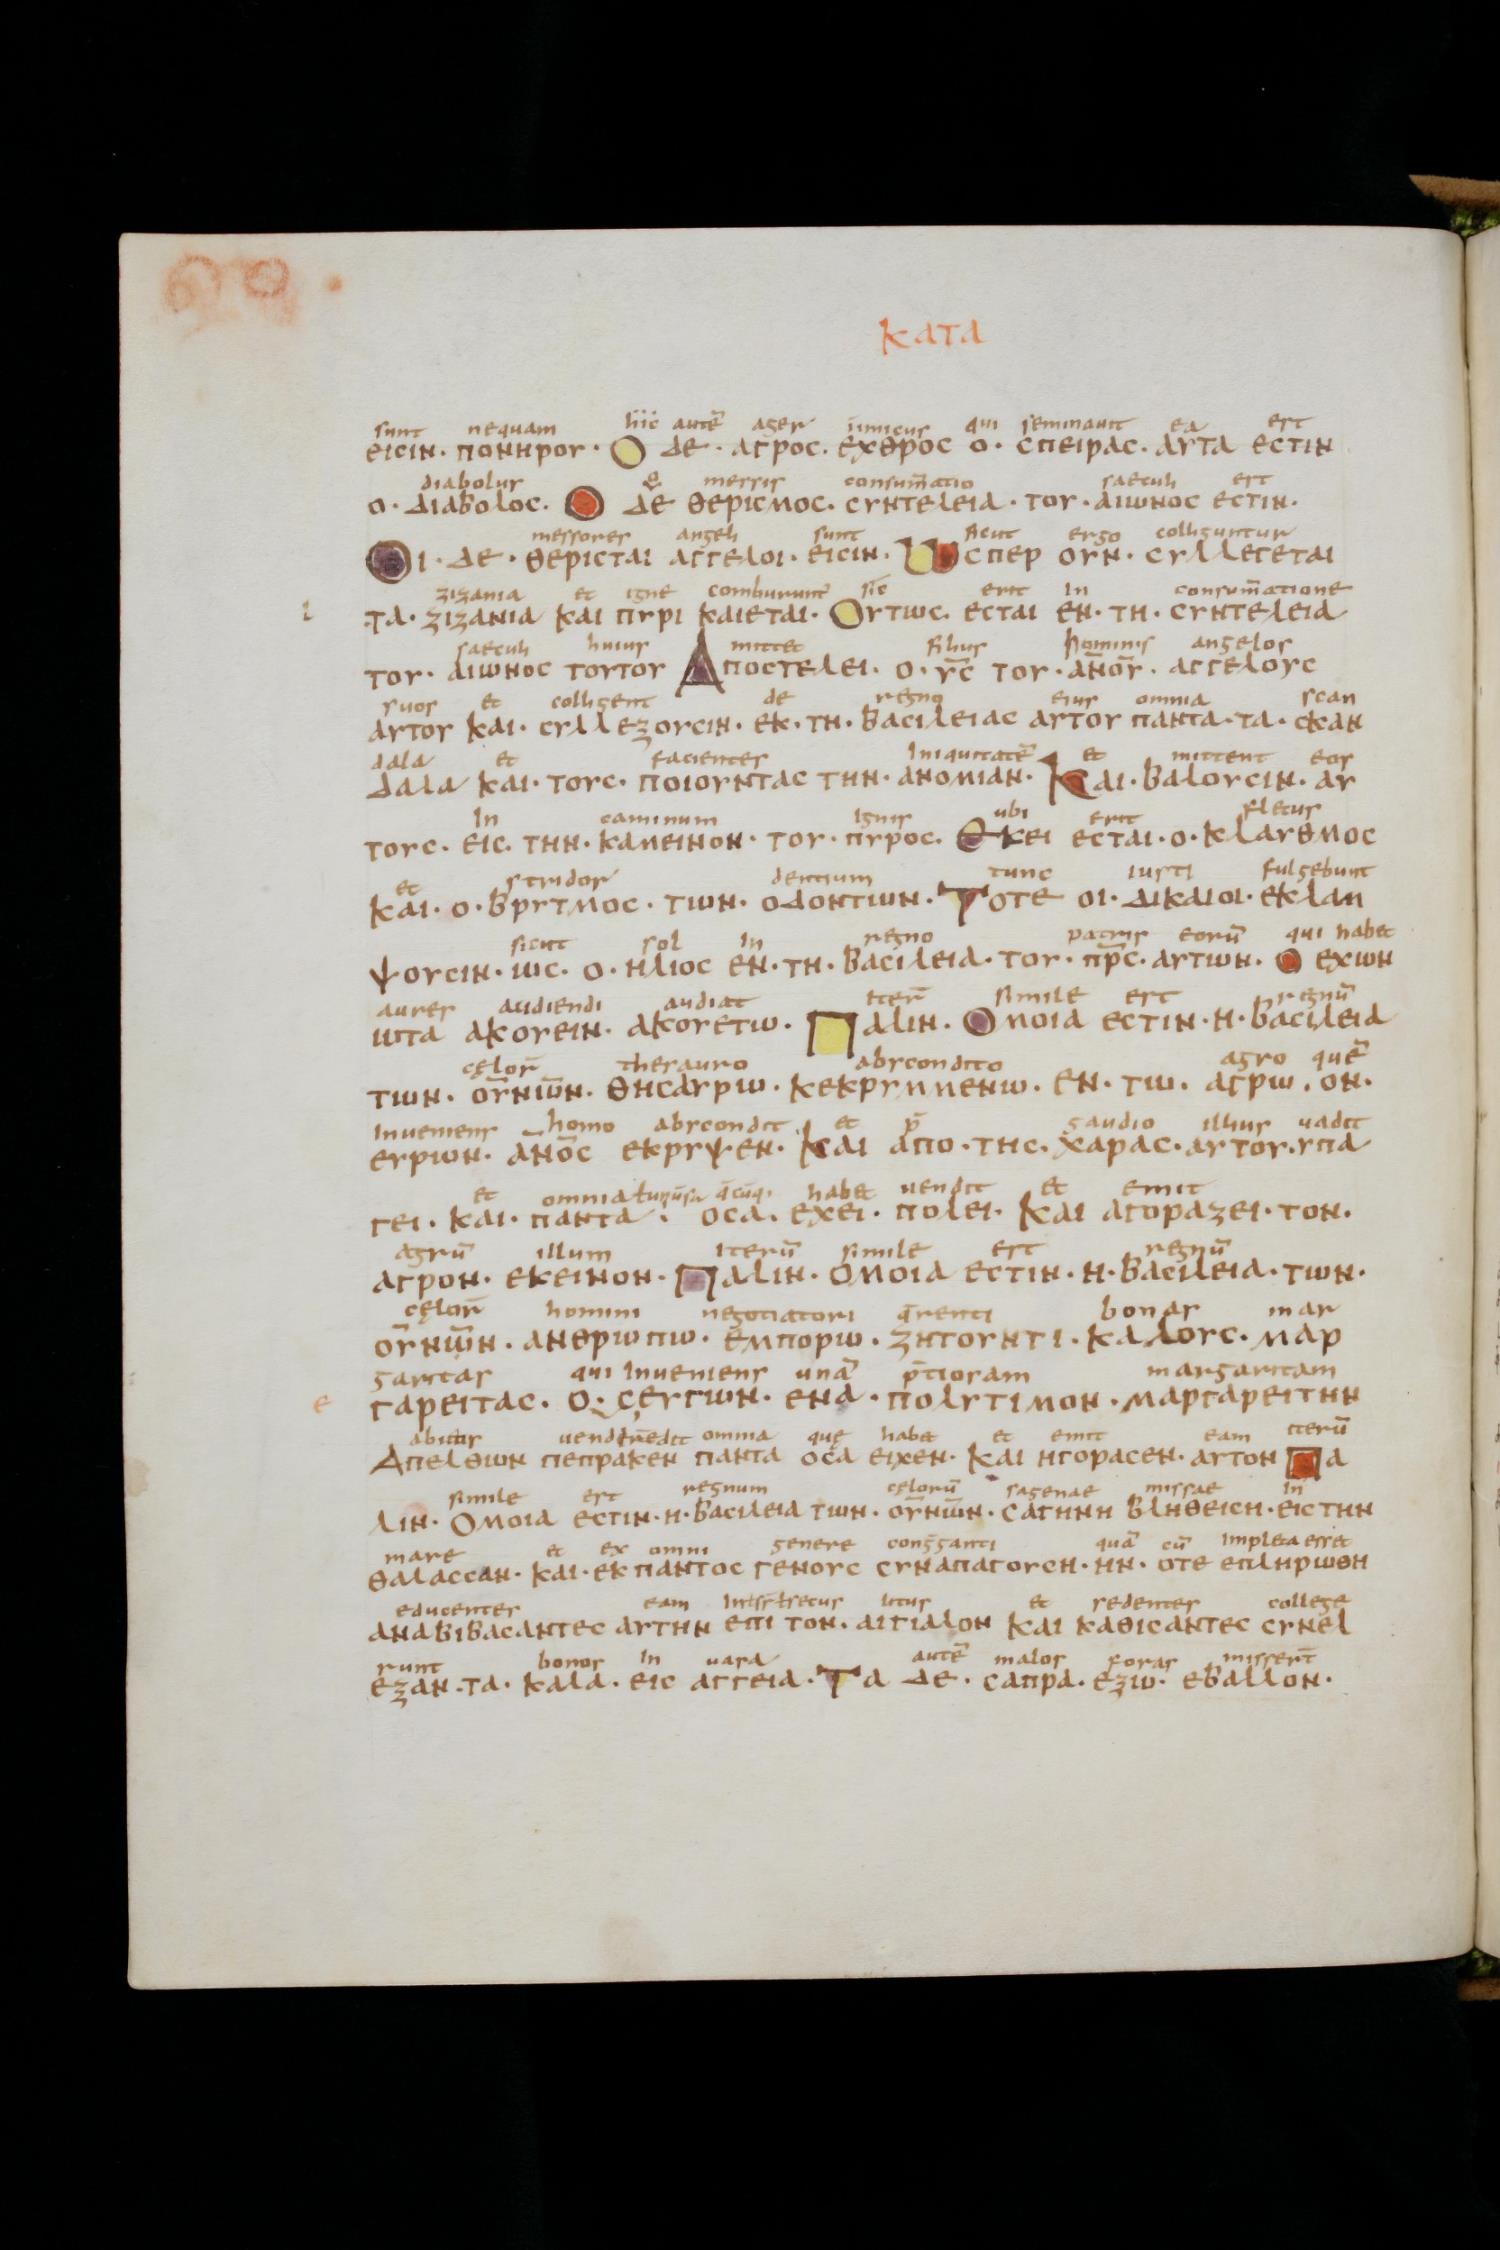 60.
κατα
sunt nequam hic autē ager inimicus qui seminauit ea est
εισιν· πονηροι· Ο δε· αγρος· εχθρος ο· σπειρας· αυτα εστιν
diabolus messis consum̄atio saeculi est
ο· διαβολος· Ο δε θερισμος· συντελεια· του· αιωνος εστιν·
messores angeli sunt sicut ergo colliguntur
Οι· δε· θερισται αγγελοι· εισιν· Ωσπερ ουν· συλλεγεται
zizania et igne comburunt sic erit in consum̄atione
τα· ζιζανια και πυρι καιεται· Ουτως· εσται εν· τη· συντελεια
saeculi huius mittet filius hominis angelos
του· αιωνος τουτου Αποστελει· ο· ῡς του· αν̄οῡ· αγγελους
suos et colligent de regno eius omnia scan
αυτου και· συλλεξουσιν· εκ· τη· βασιλειας αυτου παντα· τα· σκαν
dala et facientes iniquitatē et mittent eos
δαλα και· τους· ποιουντας την· ανομιαν· Και· βαλουσιν· αυ
in caminum ignis ubi erit fletus
τους· εις· την· καμεινον· του· πυρος· Εκει εσται· ο· κλαυθμος
et stridor dentium tunc iusti fulgebunt
και· ο· βρυγμος· των· οδοντων· Τοτε οι· δικαιοι· εκλαμ
sicut sol in regno patris eorū qui habet
ψουσιν· ως· ο· ηλιος εν· τη· βασιλεια· του· πρ̄ς· αυτων· Ο εχων
aures audiendi audiat iterū simile est regnū
ωτα ακουειν· ακουετω· Παλιν· Ομοια εστιν· η· βασιλεια
cęlor̄ thesauro abscondito agro quē
των· ουρ̄νω̄ν· θησαυρω· κεκρυμμενω· εν· τω· αγρω· ον·
inueniens homo abscondit et p̄ gaudio illius uadit
ευρων· αν̄ος εκρυψεν· Και απο· της· χαρας· αυτου· υπα
et omnia habet uendit et emit
γει· και· παντα· οσα· εχει· πολει· και αγοραζει· τον·
agrū illum iterū simile est regnū
αγρον· εκεινον· Παλιν· ομοια εστιν· η· βασιλεια· των·
cęlor̄ homini negotiatori q̄renti bonas mar
ουρ̄νω̄ν· ανθρωπω· εμπορω· ζητουντι· καλους· μαρ
garitas qui inueniens unā p̄tiosam margaritam
γαρειτας· ο· ευρων· ενα· πολυτιμον· μαργαρειτην
omnia quę habet et emit eam iterū
Απελθων πεπρακεν παντα οσα ειχεν· και ηγορασεν· αυτον Πα
simile est regnum cęlorū sagenae missae in
λιν· Ομοια εστιν· η· βασιλεια των· ουρ̄νω̄ν· σαγηνη βληθειση· εις την
mare et ex omni genere cong̅ganti quā cū impleta esset
θαλασσαν· και· εκ παντος γενους συναπαγουση· ην· οτε επληρωθη
educentes eam secus et sedentes college
αναβιβασαντες αυτην επι τον· αιγιαλον και καθισαντες συνελ
runt bonos in uasa autē malos foras misser̄t
εξαν· τα· καλα· εις αγγεια· Τα δε· σαπρα· εξω· εβαλλον·